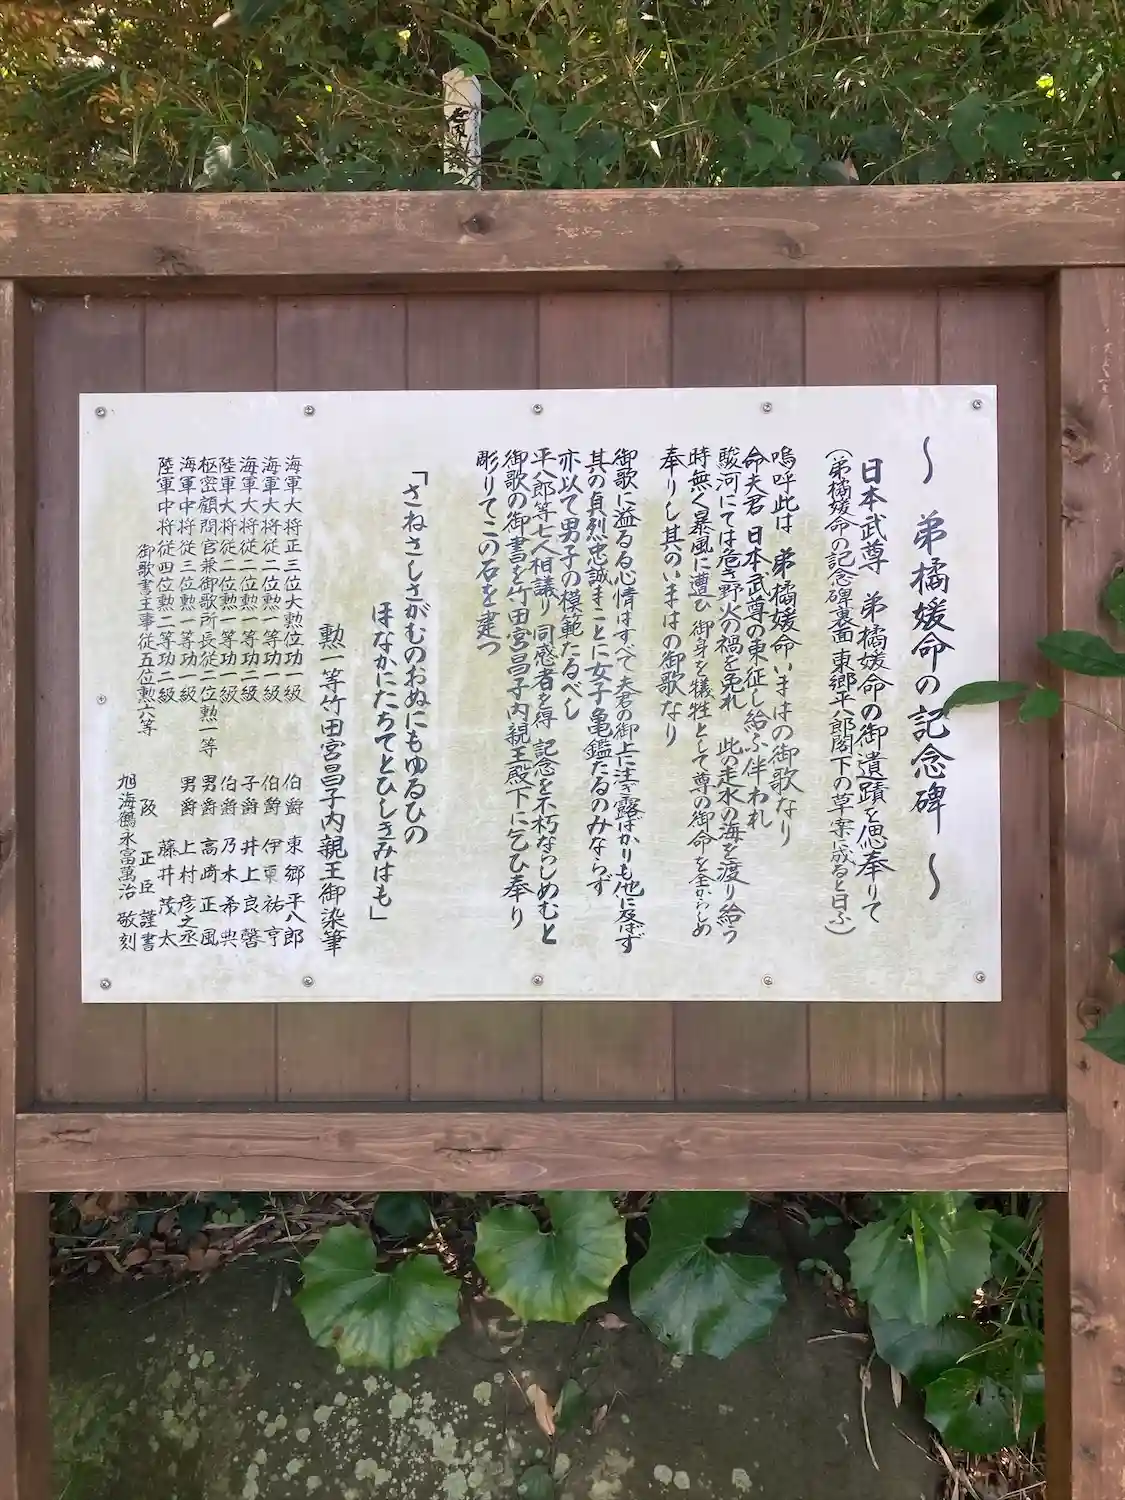 ～ 弟橘媛命の記念碑 ～
日本武尊 弟橘媛命の御遺蹟を偲奉りて
(弟橘媛命の記念碑裏面 東郷平八郎閣下の草案に成ると曰ふ)
嗚呼此は 弟橘媛命いまはの御歌なり
命夫君 日本武尊の東征し給ふ伴われ
駿河にては危き野火の禍を免れ 此の走水の海を渡り給う
時無く暴風に遭ひ 御身を犠牲として尊の御命を全からしめ
奉りし其のいまはの御歌なり
御歌に溢るる心情はすべて夫君の御上に注ぎ露ばかりも他に及ばず
其の貞烈忠誠まことに女子亀鑑たるのみならず
亦以て男子の模範たるべし
平八郎等七人相議り 同感者を得 記念を不朽ならしめむと
御歌の御書を竹田宮昌子内親王殿下に乞ひ奉り
彫りてこの石を建つ
「さねさしさがむのおぬにもゆるひの
ほなかにたちてとひしきみはも」
勲一等竹田宮昌子内親王御染筆
海軍大将正三位大勲位功一級 伯爵 東郷平八郎
海軍大将従二位勲一等功一級 伯爵 伊東祐亨
海軍大将従二位勲一等功二級 子爵 井上良馨
陸軍大将従二位勲一等功一級 伯爵 乃木希典
枢密顧問官兼御歌所長従二位勲一等 男爵 高崎正風
海軍中将従三位勲一等功一級 男爵 上村彦之丞
陸軍中将従四位勲二等功二級 藤井茂太
御歌書主事従五位勲六等 阪正臣 謹書
旭海鶴永富萬治 敬刻